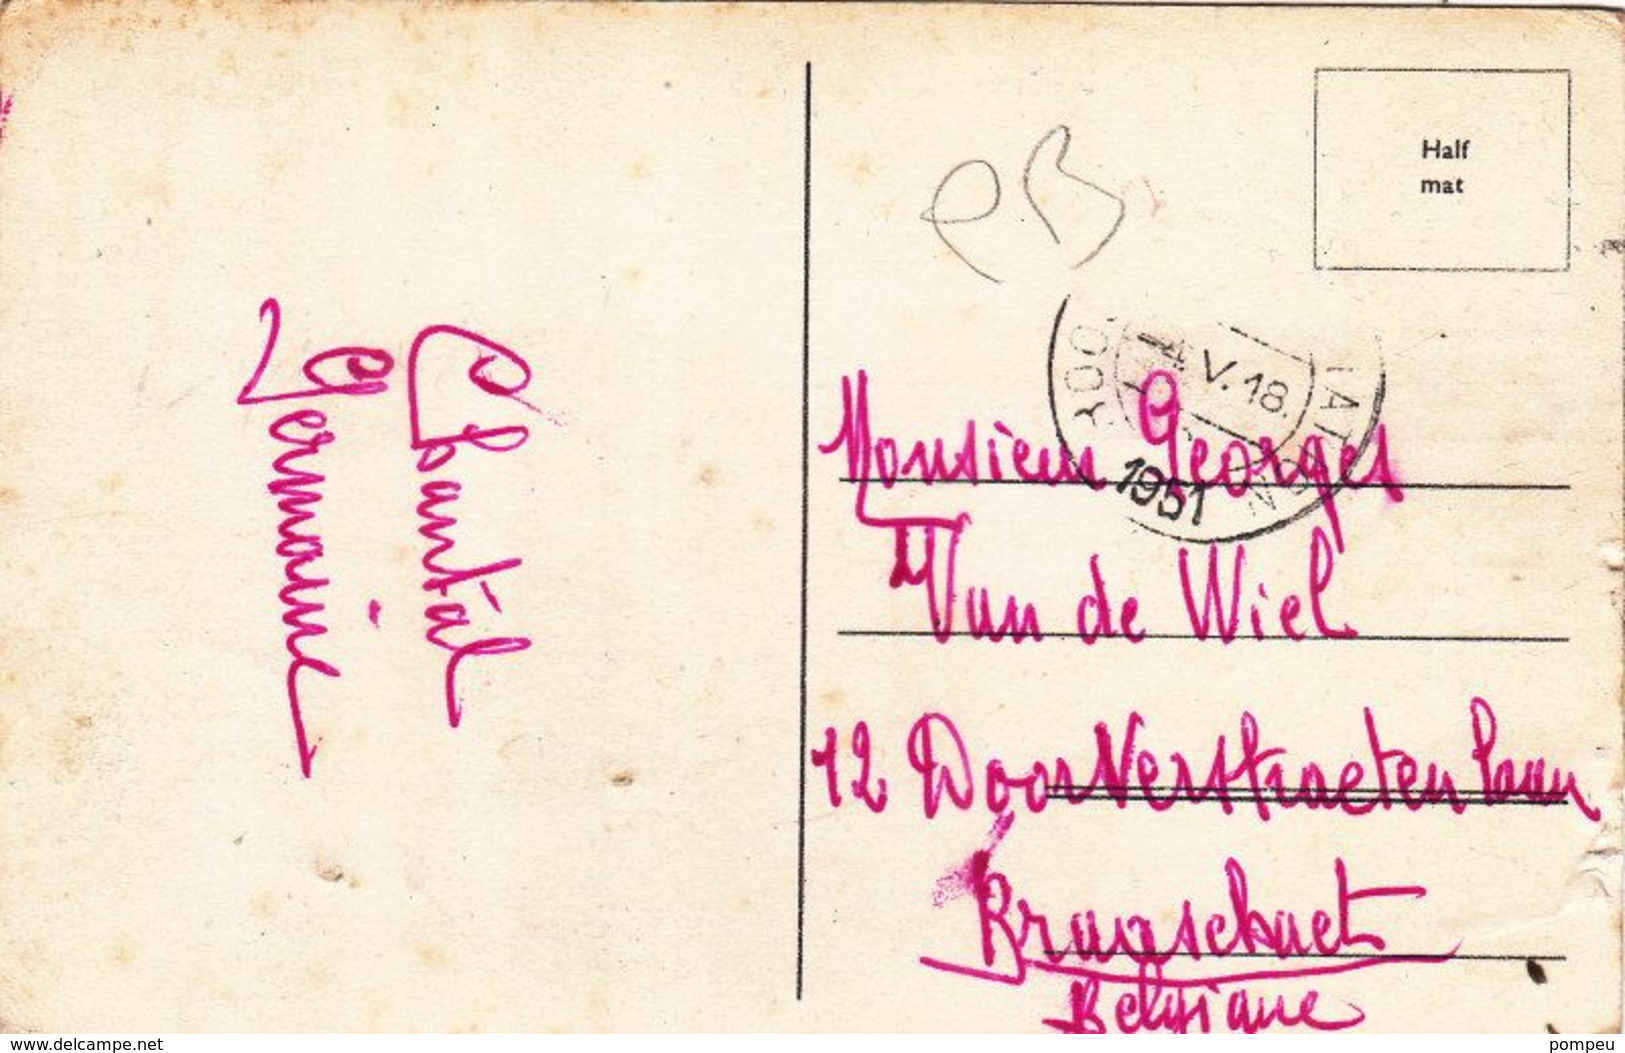 Half
mat
V.18.
1951
Chantal
Germaine
Monsieur Georges
Van de Wiel
12 Door Verstraeten laan
Brasschaet
Belgique
www.delcampe.net
pompeu